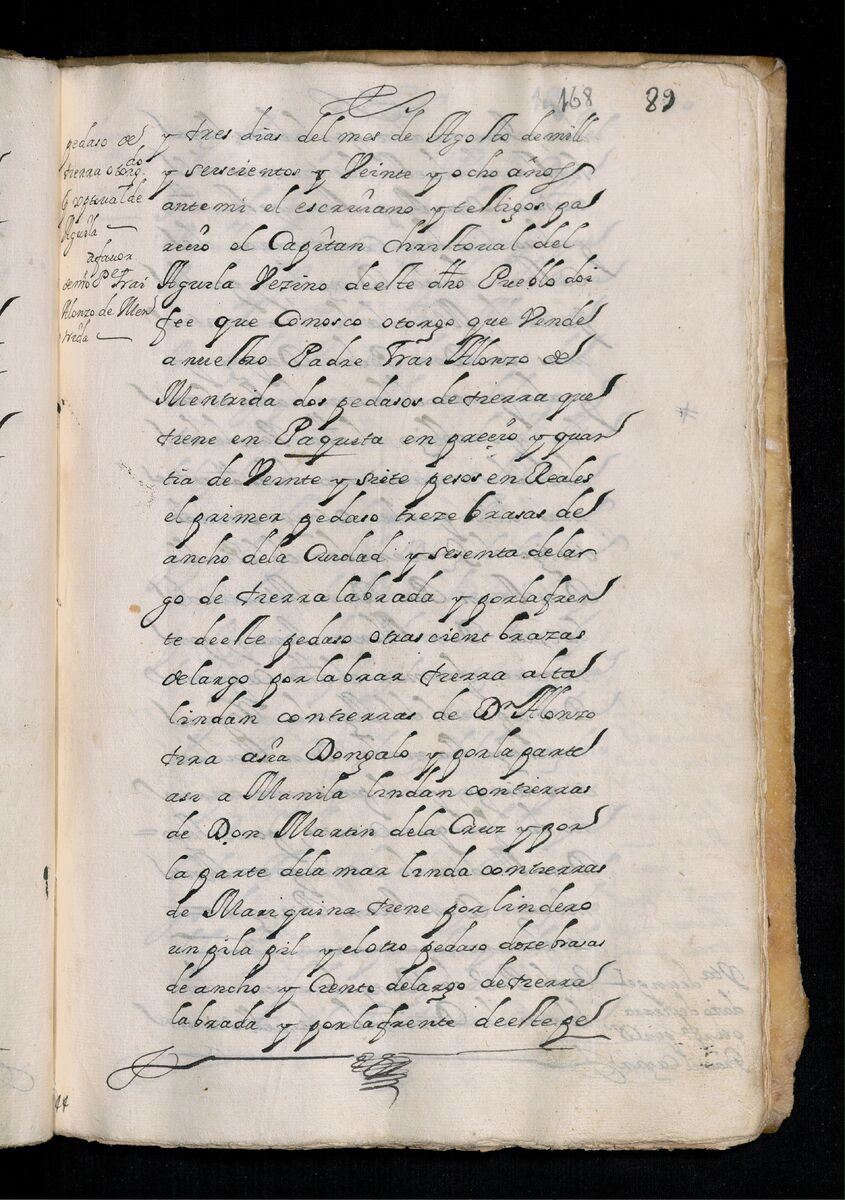 168 89
pedaso de
tierra otorg.do
Xptoual de
Aguila
a fauor
de nro Pe frai
Alonzo de Men
trida
y tres dias del mes de Agosto de mill
y seiscientos y Veinte y ocho años
ante mi el escriuano y testigos pa
recio el Capitan Christoual del
Aguila Vezino de este dho Pueblo doi
fee que Conosco otorgo que Vende
a nuestro Padre frai Alonzo de
Mentrida dos pedasos de tierra que
tiene en Paquita en precio y quan
tia de Veinte y siete pesos en Reales
el primer pedaso treze brasas de
ancho dela Ciudad y sesenta de lar
go de tierra labrada y por la fren
te de este pedaso otras cient brazas
de largo por labrar tierra alta
lindan con tierras de Dn Alonzo
tira asia Dongalo y por la parte
asi a Manila lindan con tierras
de Don Martin dela Cruz y por
la parte dela mar linda con tierras
de Mariquina tiene por lindero
un pilapil y el otro pedaso doze brasas
de ancho y Ciento de largo de tierra
labrada y por la frente de este pe